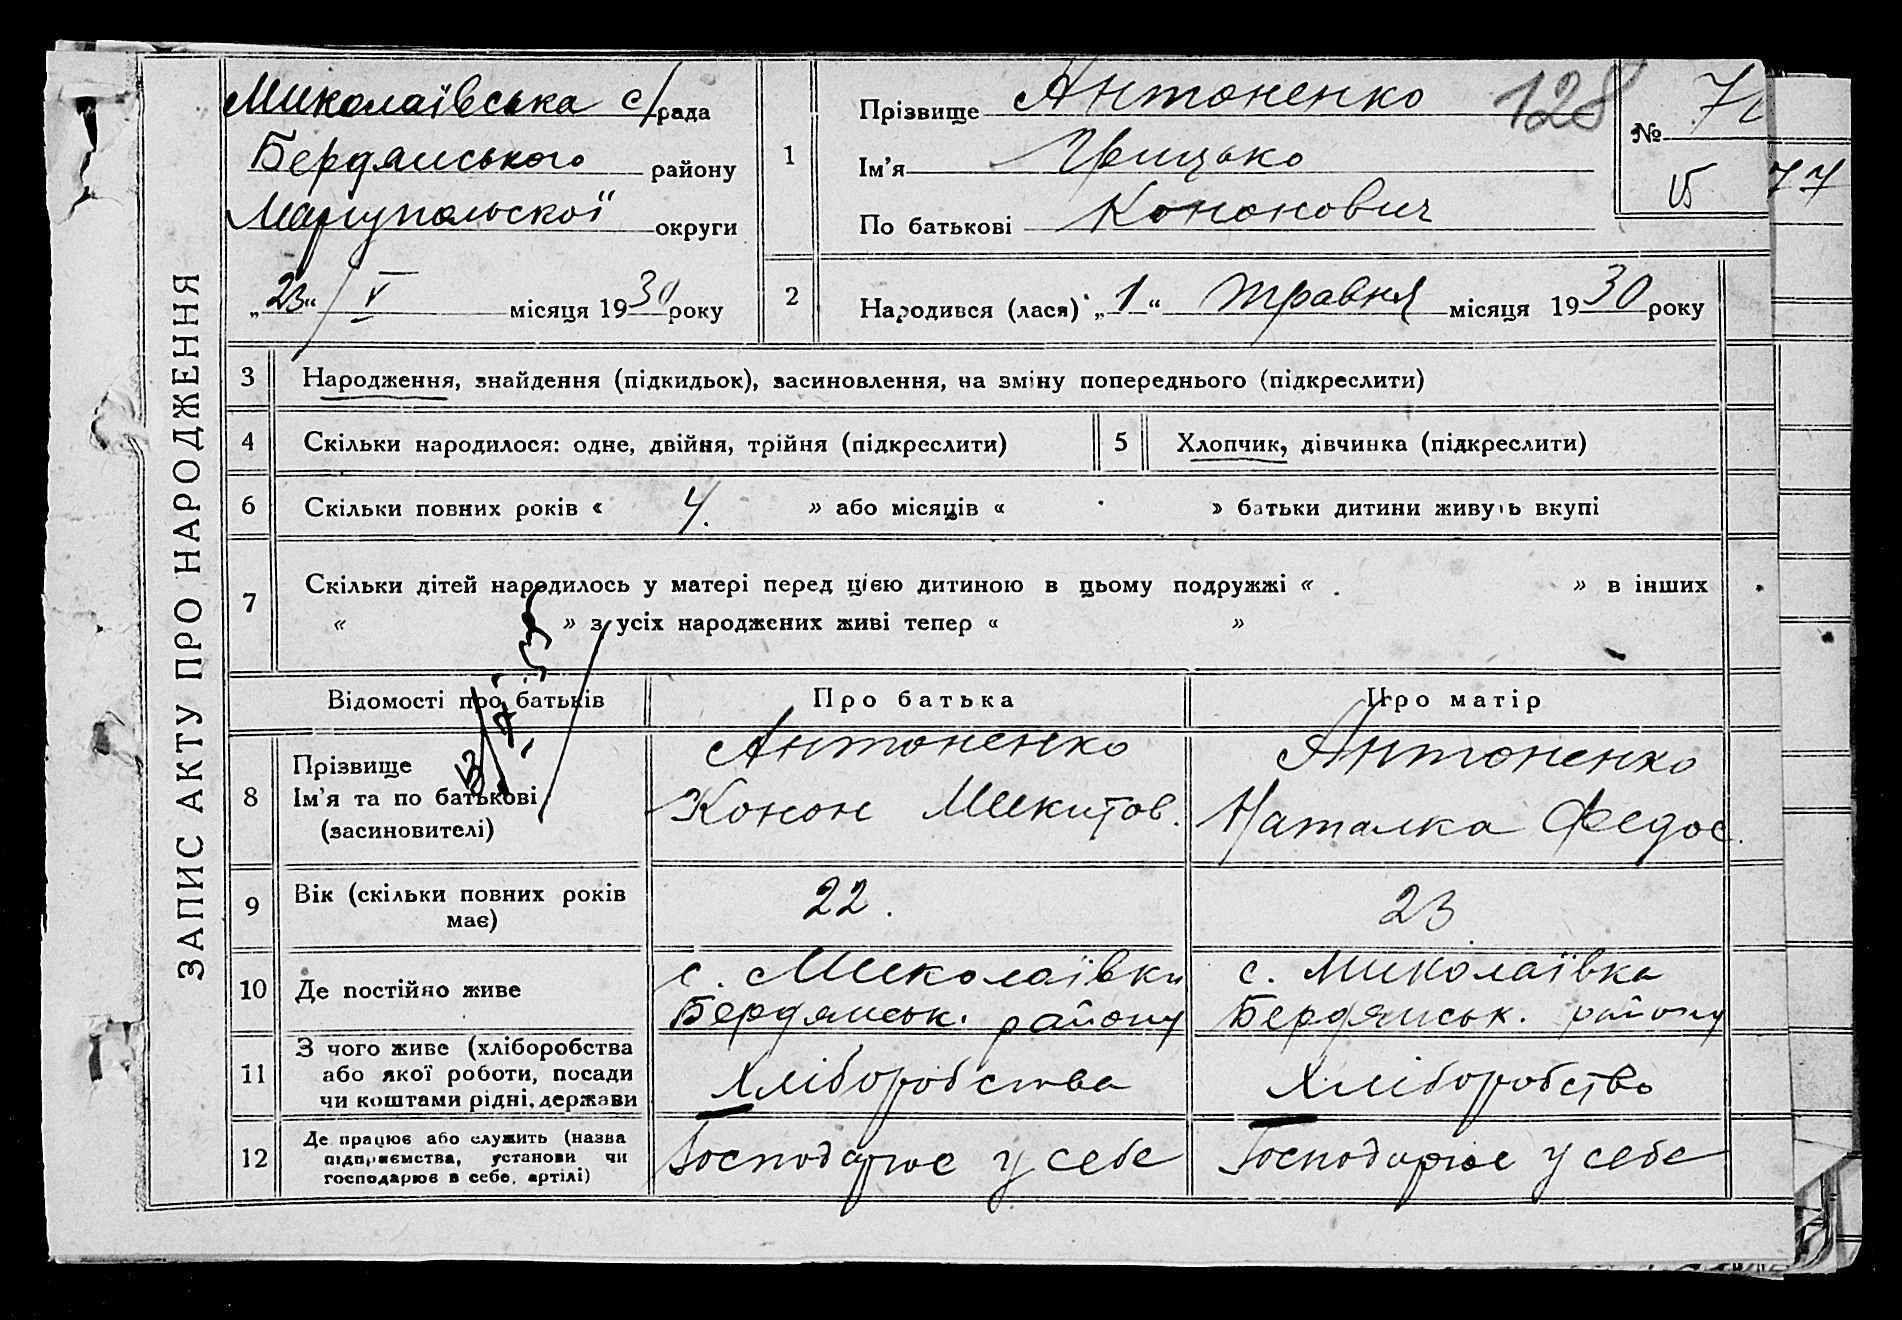 ЗАПИС АКТУ ПРО НАРОДЖЕННЯ
Миколаївська с/рада
Бердянського району
Маріупольскої округи
„23“ / V місяця 1930 року
1
Прізвище Антоненко
Ім’я Грицько
По батькові Кононович
128
№ 7
77
2
Народився (лася) „1“ травня місяця 1930 року
3 Народження, знайдення (підкидьок), засиновлення, на зміну попереднього (підкреслити)
4 Скільки народилося: одне, двійня, трійня (підкреслити)
5 Хлопчик, дівчинка (підкреслити)
6 Скільки повних років « 4. » або місяців « » батьки дитини живуть вкупі
7 Скільки дітей народилось у матері перед цією дитиною в цьому подружжі « » в інших
« » з усіх народжених живі тепер « »
Відомості про батьків Про батька Про матір
8 Прізвище
Ім’я та по батькові
(засиновителі)
Антоненко
Конон Микитов.
Антоненко
Наталка Федос.
9 Вік (скільки повних років
має)
22.
23
10 Де постійно живе
с. Миколаївки
Бердянськ. району
с. Миколаївка
Бердянськ. району
11 З чого живе (хліборобства
або якої роботи, посади
чи коштами рідні, держави
Хліборобства
Хліборобство
12 Де працює або служить (назва
підприємства, установи чи
господарює в себе, артілі)
Господарює у себе
Господарює у себе